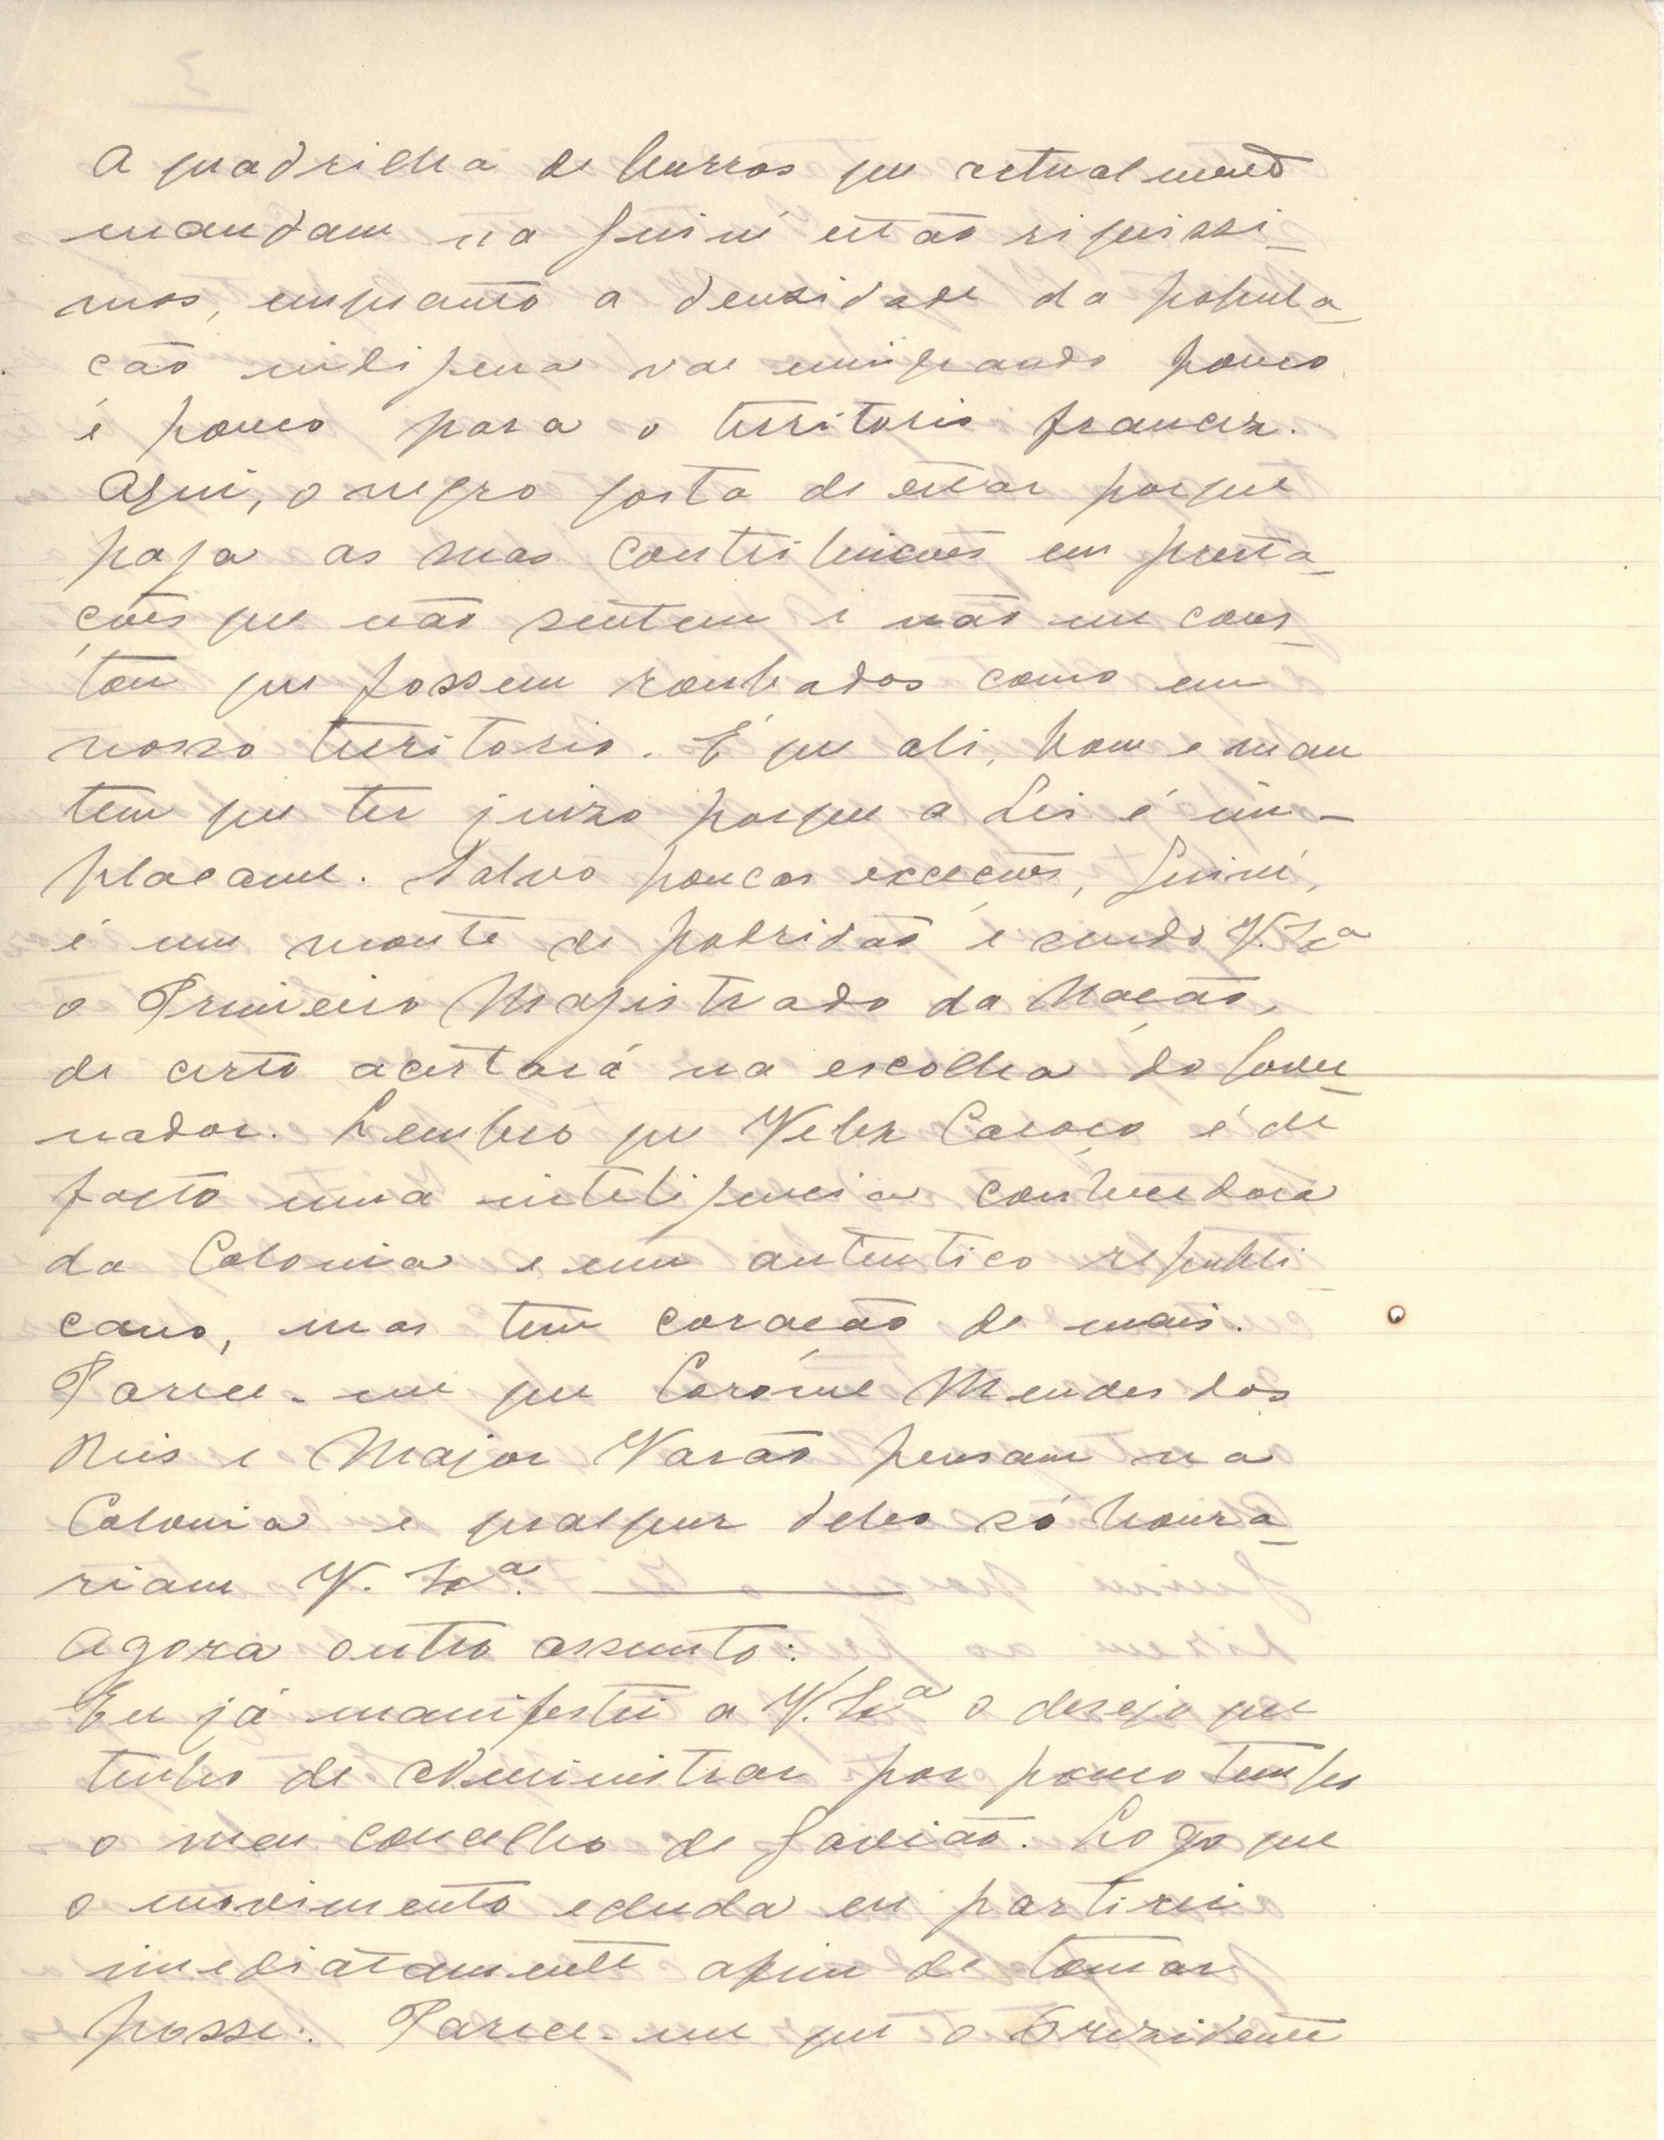 A quadrilha de burros que actualmente
mandam na Guiné estão riquissi-
mos, emquanto a densidade da popula-
ção indigena vae emigrando pouco
e pouco para o territorio francez.
Aqui, o negro gosta de estar porque
paga as suas contribuições em presta-
ções que não sentem e não me cons-
tou que fossem roubados como em
nosso territorio. É que ali, bom e mau
tem que ter juizo porque a Lei é im-
placavel. Salvo poucas excepções, Guiné,
é um monte de podridão e sendo V. Exª
o Primeiro Magistrado da Nação,
de certo acertará na escolha do Gover-
nador. Lembro que Velez Caroço é de
facto uma inteligencia conhecedora
da Colonia e um autentico republi-
cano, mas tem coração de mais.
Parece-me que Coronel Mendes dos
Reis e Major Varão pensam na
Colonia e qualquer deles só honra-
riam V. Exª.
Agora outro assunto:
Eu já manifestei a V. Exª o desejo que
tenho de administrar por pouco tempo
o meu concelho de Gavião. Logo que
o movimento ecluda eu partirei
imediatamente afim de tomar
posse. Parece-me que o Prezidente